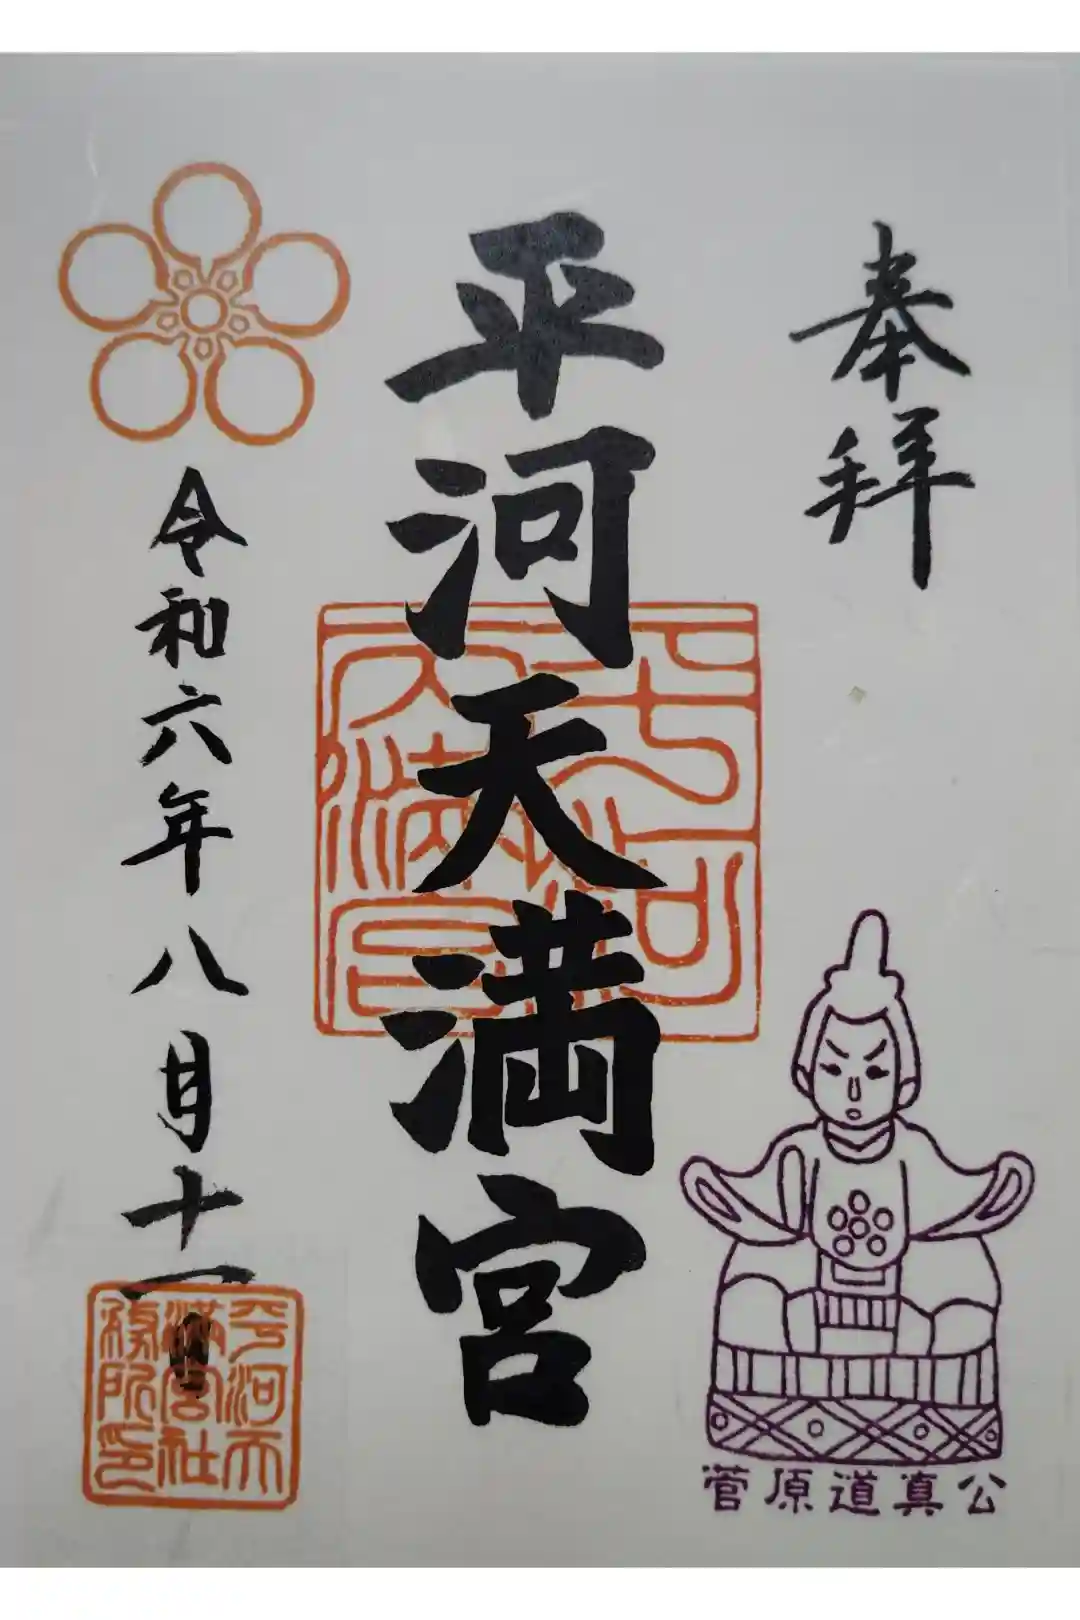 奉拝
平河天満宮
平河
天満宮
令和六年八月十一日
平河天
満宮社
務所印
菅原道真公